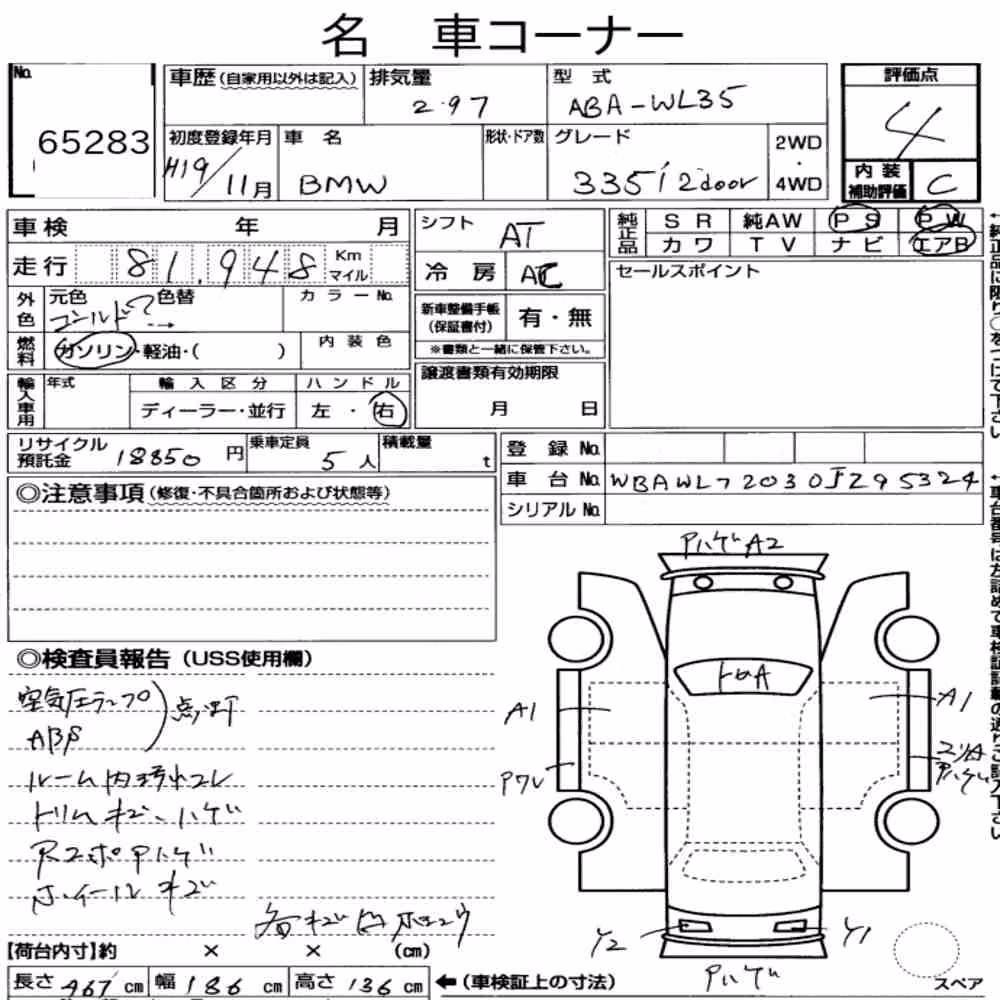 名 車コーナー
No.
65283
車歴(自家用以外は記入)
排気量
2.97
型 式
ABA-WL35
評価点
4
初度登録年月
H19/11月
車 名
BMW
形状・ドア数
グレード
335i 2door
2WD
・
4WD
内 装
補助評価
C
車検 年 月
シフト
AT
純正品
SR 純AW PS PW
カワ TV ナビ エアB
走行 81,948 Km マイル
冷 房
AC
セールスポイント
外色
元色 色替
カラーNo.
新車整備手帳
(保証書付)
有・無
※書類と一緒に保管下さい。
燃料
ガソリン・軽油・( )
内 装 色
輸入車用
年式
輸 入 区 分
ディーラー・並行
ハ ン ド ル
左 ・ 右
譲渡書類有効期限
月 日
リサイクル
預託金
18850 円
乗車定員
5 人
積載量
t
登 録 No.
車 台 No. WBAWL72030JZ95324
シリアル No.
◎注意事項(修復・不具合箇所および状態等)
◎検査員報告(USS使用欄)
空気圧ランプ
ABS
点灯
ルーム内汚れコレ
トリムキズ、ハゲ
ホイールキズ
PハゲA2
A1
A1
Y2
Y1
Pハゲ
スペア
【荷台内寸】約 × × (cm)
長さ 467 cm 幅 186 cm 高さ 136 cm ←(車検証上の寸法)